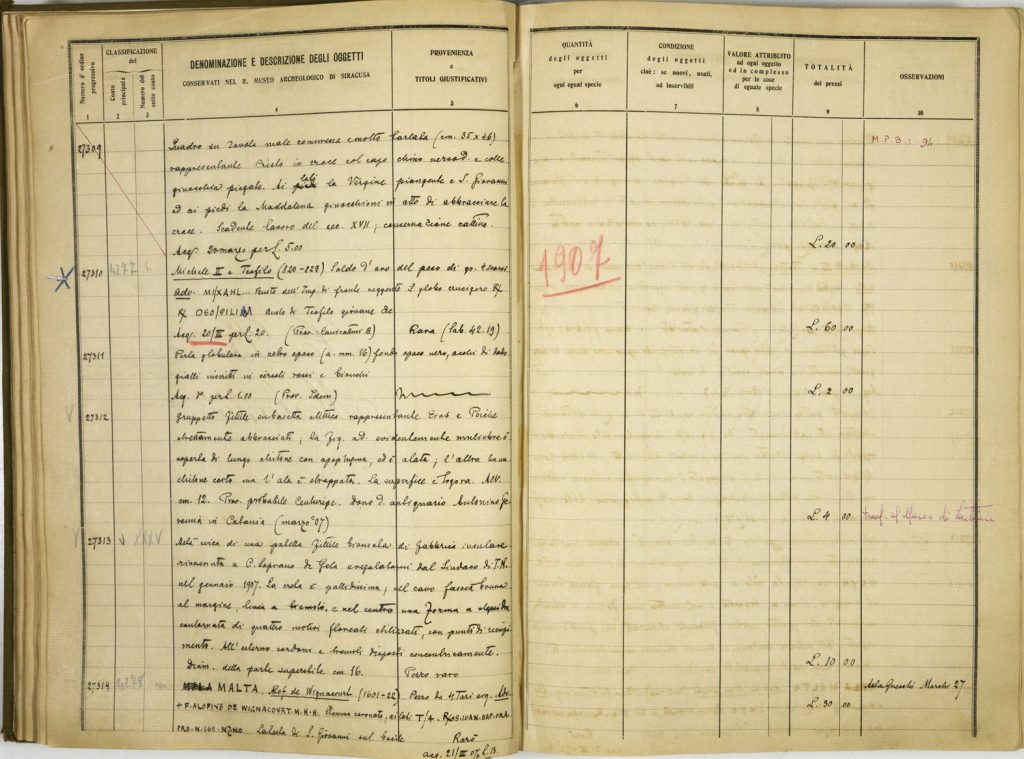 Numero d'ordine progressivo
CLASSIFICAZIONE
del
Conto principale
Numero del sotto conto
DENOMINAZIONE E DESCRIZIONE DEGLI OGGETTI
CONSERVATI NEL R. MUSEO ARCHEOLOGICO DI SIRACUSA
PROVENIENZA
e
TITOLI GIUSTIFICATIVI
QUANTITÀ
degli oggetti
per
ogni eguai specie
CONDIZIONE
degli oggetti
cioè: se nuovi, usati,
od inservibili
VALORE ATTRIBUITO
ad ogni oggetto
ed in complesso
per le cose
di eguale specie
TOTALITÀ
dei prezzi
OSSERVAZIONI
1 2 3 4 5 6 7 8 9 10
27309 Quadro su tavola male commessa e molto tarlata (cm. 35 x 46) M.P.B.: 94
rappresentante Cristo in croce col capo chino verso d. e colle
ginocchia piegate. Ai lati la Vergine piangente e S. Giovanni
ed ai piedi la Maddalena ginocchioni in atto di abbracciare la
croce. Scadente lavoro del sec. XVII; conservazione cattiva.
Acq. 20 marzo per L. 5.00 L. 20 00
1907
27310 4277 6 Michele II e Teofilo (820-829) Soldo d'oro del peso di gr. 4 scarsi
MIXAHL... Busto dell'Imp. di fronte reggente il globo crucigero R/
R/ ΘEO/FILI Busto di Teofilo giovane
Acq. 20/III per L. 20. (Prov. Canicattini B) Rara (Sab. 42.19) L. 60 00
27311 Perla globulare in vetro opaco (a. mm. 16) fondo opaco nero,
gialli inscritti in circoli rossi e bianchi
Acq. per L. 1.00 (Prov. Idem) L. 2 00
27312 Gruppetto fittile su basetta ellittica rappresentante Eros e Psiche
strettamente abbracciati; la fig. ad. evidentemente muliebre è
coperta di lungo chitone con apoptygma, ed è alata; l'altra ha un
chitone corto ma l'ala è strappata. La superficie è logora. Alt.
cm. 12. Prov. probabile Centuripe. Dono d. antiquario Antonino
in Catania (marzo '07) L. 4 00 al Museo di
27313 V XXXV Metà circa di una paletta fittile biansata di fabbrica insulare
rinvenuta a C. Soprano di Gela e regalatami dal Sindaco di T.N.
nel gennaio 1907. La creta è pallidissima; nel cavo fascia bruna
al margine, linea a tremolo, e nel centro una forma a
contornata di quattro motivi floreali stilizzati, con punti di riempi
mento. All'esterno cordoni e tremoli disposti concentricamente.
Diam. della parte superstite cm. 16. Pezzo raro L. 10 00
27314 4278 MALTA. Alof de Wignacourt (1601-22) Pezzo da 4 Tari arg. 27
+ F. ALOFIVS DE WIGNACOURT. M. H. H. coronato, ai lati T/4. L. 30 00
PRO. N. di S. Giovanni sul bacile Raro
acq. 21/III 07 L. 13.